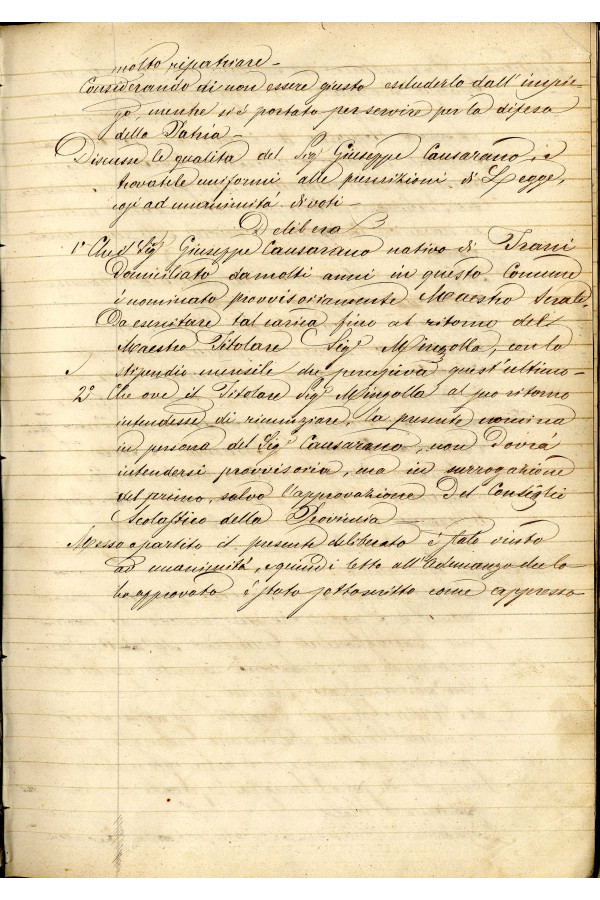 molto ripatriare –
Considerando di non essere giusto escluderlo dall'impie-
go, mentre si è portato per servire per la difesa
della Patria –
Discusse le qualità del Sig.r Giuseppe Causarano, e
trovatele uniformi alle prescrizioni di Legge,
ad unanimità di voti –
Delibera
1° Che il Sig.r Giuseppe Causarano nativo di Trani
domiciliato da molti anni in questo Comune
è nominato provvisoriamente Maestro Serale.
Da esercitare tal carica fino al ritorno del
Maestro Titolare Sig.r Mingolla, con lo
stipendio mensile che percepiva quest'ultimo –
2° Che ove il Titolare Sig.r Mingolla al suo ritorno
intendesse di rinunziare, la presente nomina
in persona del Sig.r Causarano, non dovrà
intendersi provvisoria, ma in surrogazione
del primo, salvo l'approvazione del Consiglio
Scolastico della Provincia
Messo a partito il presente deliberato è stato vinto
ad unanimità, e quindi letto all'adunanza che lo
ha approvato è stato sottoscritto come appresso